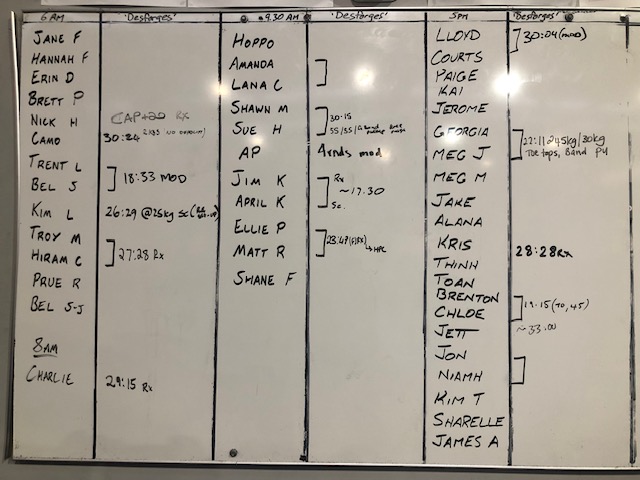 6 AM
'Desforges'
JANE F
HANNAH F
ERIN D
BRETT P
NICK H
CAP+20 Rx
CAMO
30:24
TRENT L
BEL S
18:33 MOD
KIM L
26:29 @25kg SC
TROY M
HIRAM C
27:28 Rx
PRUE R
BEL S-J
8AM
CHARLIE
29:15 Rx
9.30 AM
'Desforges'
HOPPO
AMANDA
LANA C
SHAWN M
SUE H
30:15
AP
4rnds mod
JIM K
APRIL K
Rx
~17.30
Sc.
ELLIE P
MATT R
SHANE F
5PM
'Desforges'
LLOYD
COURTS
30:04 (MOD)
PAIGE
KAI
JEROME
GEORGIA
MEG J
Toe tops, Band PU
MEG M
JAKE
ALANA
KRIS
28:28 RX
THINH
TOAN
BRENTON
CHLOE
19:15 (70, 45)
JETT
~33:00
JON
NIAMH
KIM T
SHARELLE
JAMES A